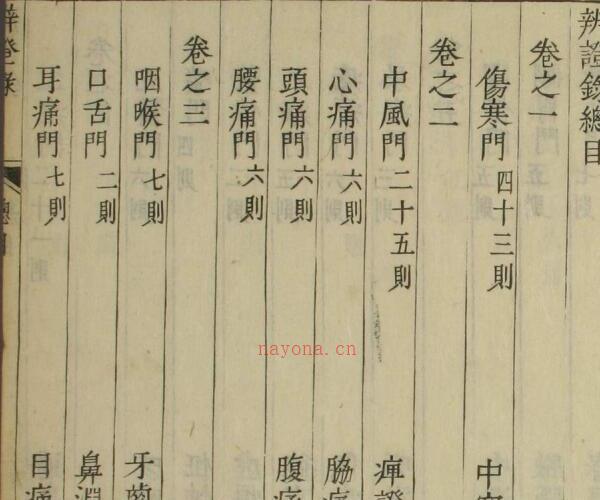 辨證錄總目
卷之一
傷寒門 四十三則 中寒
卷之二
中風門 二十五則 痺證
心痛門 六則 脇痛
頭痛門 六則 腹痛
腰痛門 六則
卷之三
咽喉門 七則 牙齒
口舌門 二則 鼻淵
耳痛門 七則 目痛
辨證錄 總目
nayona.cn